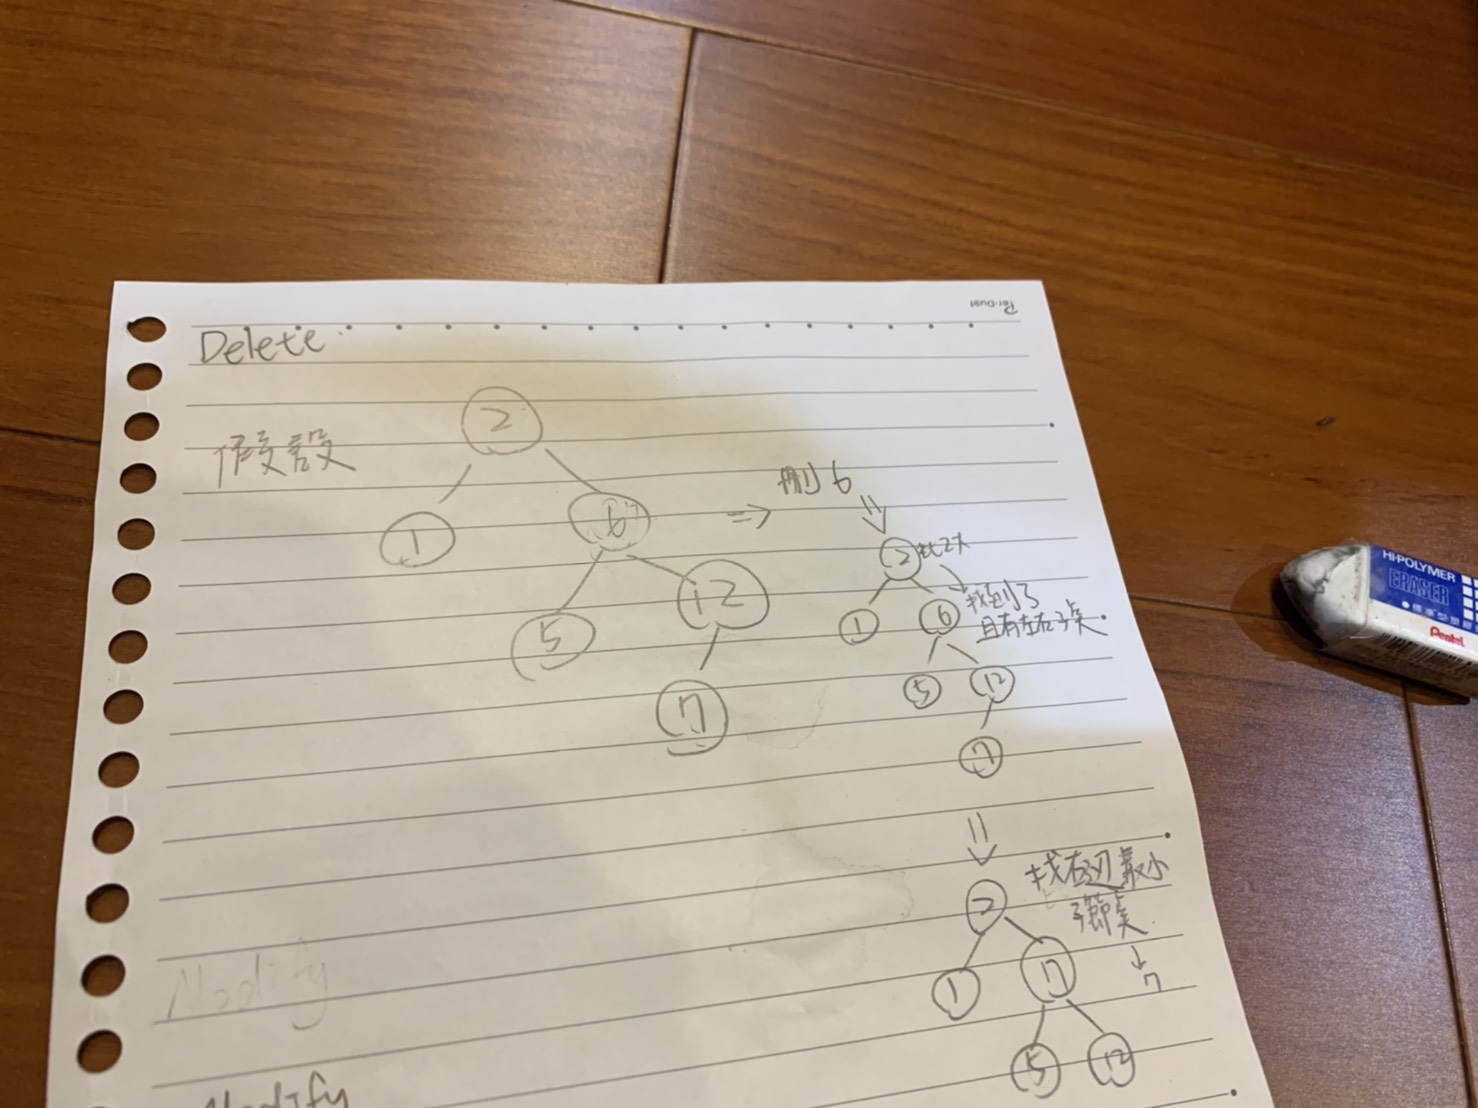 Delete
假設
2
1
6
5
12
7
⇒ 刪 6
2 比2大
1
6 找到了
且有左右子點.
5
12
7
找右邊最小
子節點
↓
7
2
1
7
5
12
Modify
Modify
HI-POLYMER
ERASER
Pentel